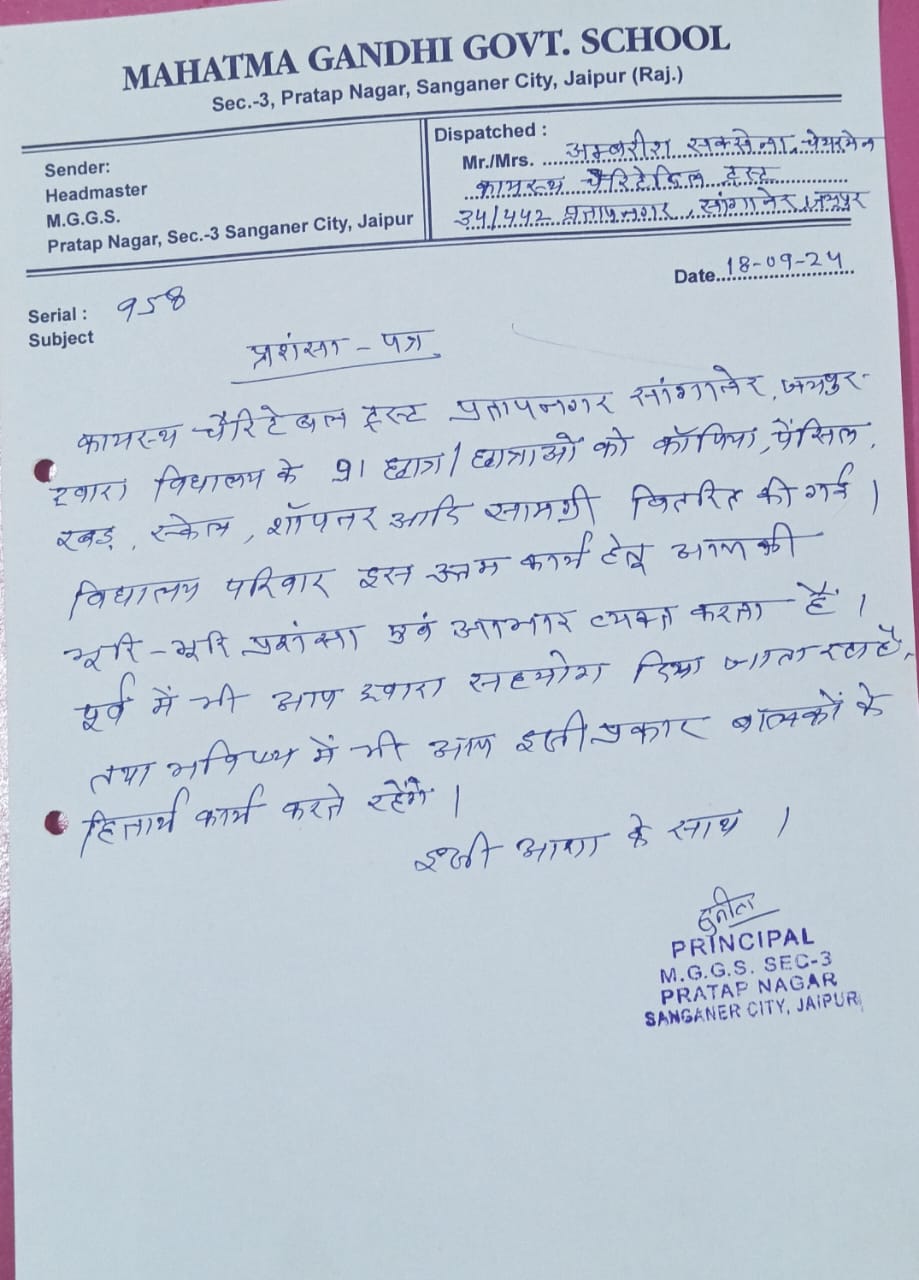 MAHATMA GANDHI GOVT. SCHOOL
Sec.-3, Pratap Nagar, Sanganer City, Jaipur (Raj.)
Sender:
Headmaster
M.G.G.S.
Pratap Nagar, Sec.-3 Sanganer City, Jaipur
Dispatched :
Mr./Mrs. अम्बरीश सक्सेना, चेयरमेन
कायस्थ चैरिटेबिल ट्रस्ट
34/442 प्रतापनगर, सांगानेर, जयपुर
Date 18-09-24
Serial : 958
Subject
प्रशंसा - पत्र
कायस्थ चैरिटेबल ट्रस्ट प्रतापनगर सांगानेर, जयपुर
द्वारा विद्यालय के 91 छात्र/छात्राओं को कॉपिया, पेंसिल,
रबड़, स्केल, शॉपनर आदि सामग्री वितरित की गई।
विद्यालय परिवार इस उत्तम कार्य हेतू आपकी
भूरि-भूरि प्रशंसा एवं आभार व्यक्त करता है।
पूर्व में भी आप द्वारा सहयोग दिया जाता रहा है,
तथा भविष्य में भी आप इसी प्रकार बालकों के
हितार्थ कार्य करते रहेंगे।
इसी आशा के साथ।
सुनीता
PRINCIPAL
M.G.G.S. SEC-3
PRATAP NAGAR
SANGANER CITY, JAIPUR